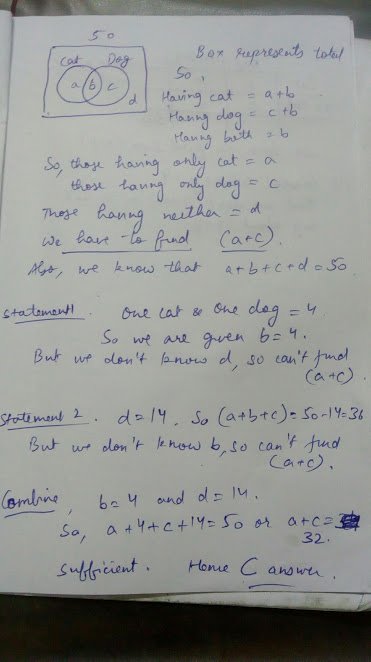 50
Box represents total
Cat Dog
a b c
d
So,
Having cat = a+b
Having dog = c+b
Having both = b
So, those having only cat = a
those having only dog = c
Those having neither = d
We have to find (a+c).
Also, we know that a+b+c+d=50
Statement 1. One cat & one dog = 4
So we are given b=4.
But we don't know d, so can't find
(a+c).
Statement 2. d=14. So (a+b+c)=50-14=36
But we don't know b, so can't find
(a+c).
Combine, b=4 and d=14.
So, a+4+c+14=50 or a+c=
32.
Sufficient. Hence C answer.